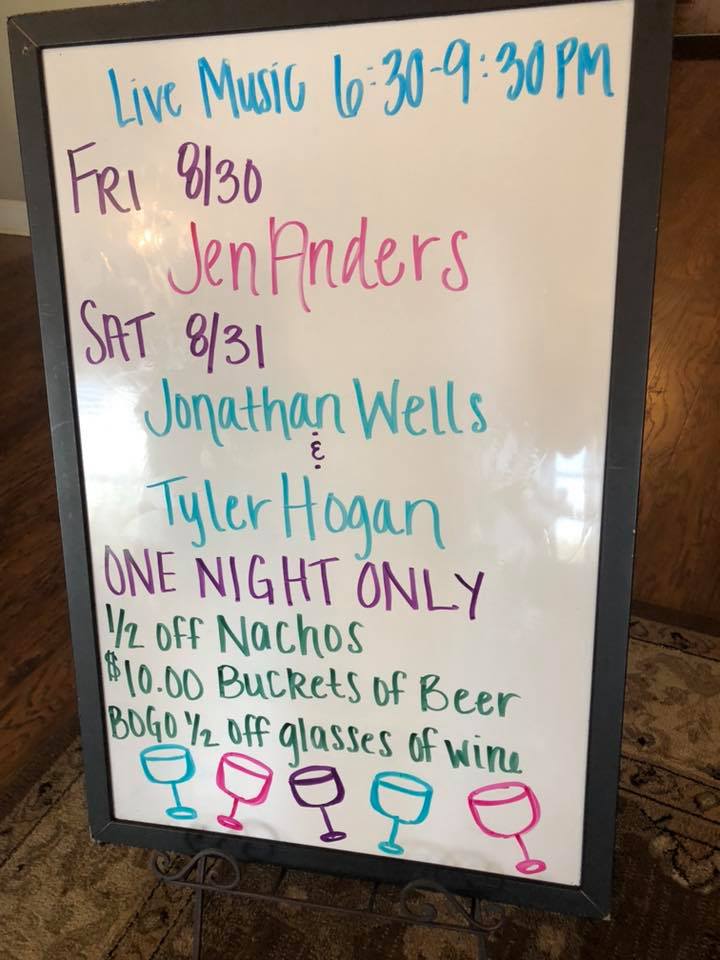 Live Music 6:30-9:30 PM
FRI 8/30
Jen Anders
SAT 8/31
Jonathan Wells
&
Tyler Hogan
ONE NIGHT ONLY
1/2 off Nachos
$10.00 Buckets of Beer
BOGO 1/2 off glasses of wine